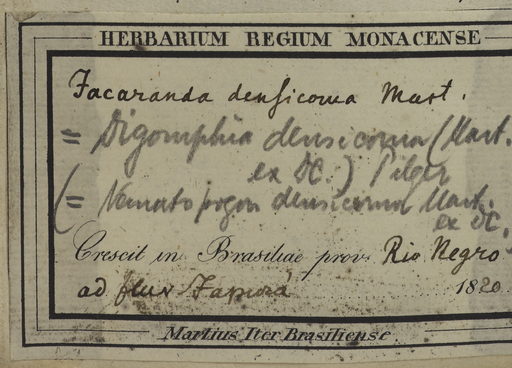 HERBARIUM REGIUM MONACENSE
Jacaranda densicoma Mart.
= Digomphia densicoma (Mart.
ex DC.) Pilger
(= Nematopogon densicoma Mart.
ex DC.
Crescit in Brasiliae prov. Rio Negro
ad fluv Japurá 1820
Martius Iter Brasiliense.